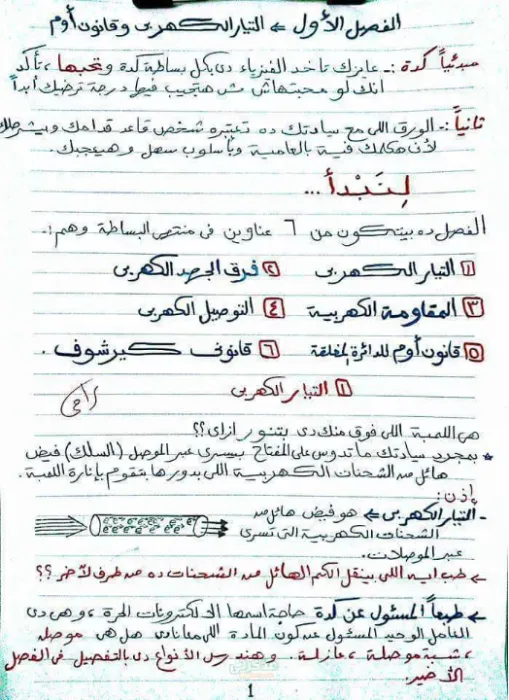 الفصل الأول ← التيار الكهربى وقانون أوم
مبدئياً كدة :- عايزك تاخد الفيزياء دى بكل بساطة كدة وتحبها، تأكد
انك لو محبتهاش مش هتجيب فيها درجة ترضيك أبداً
ثانياً :- الورق اللى مع سيادتك ده تعتبره شخص قاعد قدامك وبيشرحلك
لأن هكلمك فيه بالعامية وبأسلوب سهل وهيعجبك.
لنبدأ ...
الفصل ده بيتكون من ٦ عناوين فى منتهى البساطة وهم :-
١ التيار الكهربى ٢ فرق الجهد الكهربى
٣ المقاومة الكهربية ٤ التوصيل الكهربى
٥ قانون أوم للدائرة المغلقة ٦ قانونى كيرشوف .
١ التيار الكهربى
هى اللمبة اللى فوق منك دى بتنور ازاى؟؟
* بمجرد سيادتك ما تدوس على المفتاح بيسرى عبر الموصل (السلك) فيض
هائل من الشحنات الكهربية اللى بدورها بتقوم بإنارة اللمبة.
إذن :
- التيار الكهربى ← هو فيض هائل من
الشحنات الكهربية التى تسرى
عبر الموصلات.
← طب ايه اللى بينقل الكم الهائل من الشحنات ده من طرف لآخر؟؟
← طبعاً المسئول عن كدة حاجة اسمها الالكترونات الحرة، وهى دى
العامل الوحيد المسئول عن كون المادة اللى معانا دى هل هى موصلة
، شبه موصلة، عازلة. وهندرس الأنواع دى بالتفصيل فى الفصل
الأخير.
1